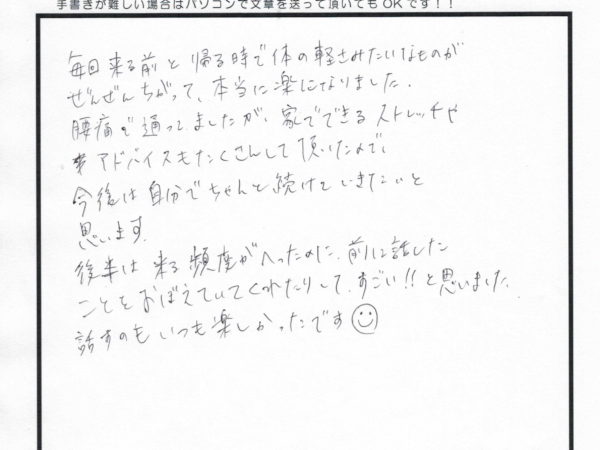 手書きが難しい場合はパソコンで文章を送って頂いてもOKです！！
毎回来る前と帰る時で体の軽さみたいなものが
ぜんぜんちがって、本当に楽になりました。
腰痛で通ってましたが、家でできるストレッチや
アドバイスもたくさんして頂いたので、
今後は自分でちゃんと続けていきたいと
思います。
後半は来る頻度がへったのに、前に話した
ことをおぼえていてくれたりして、すごい!!と思いました。
話すのもいつも楽しかったです